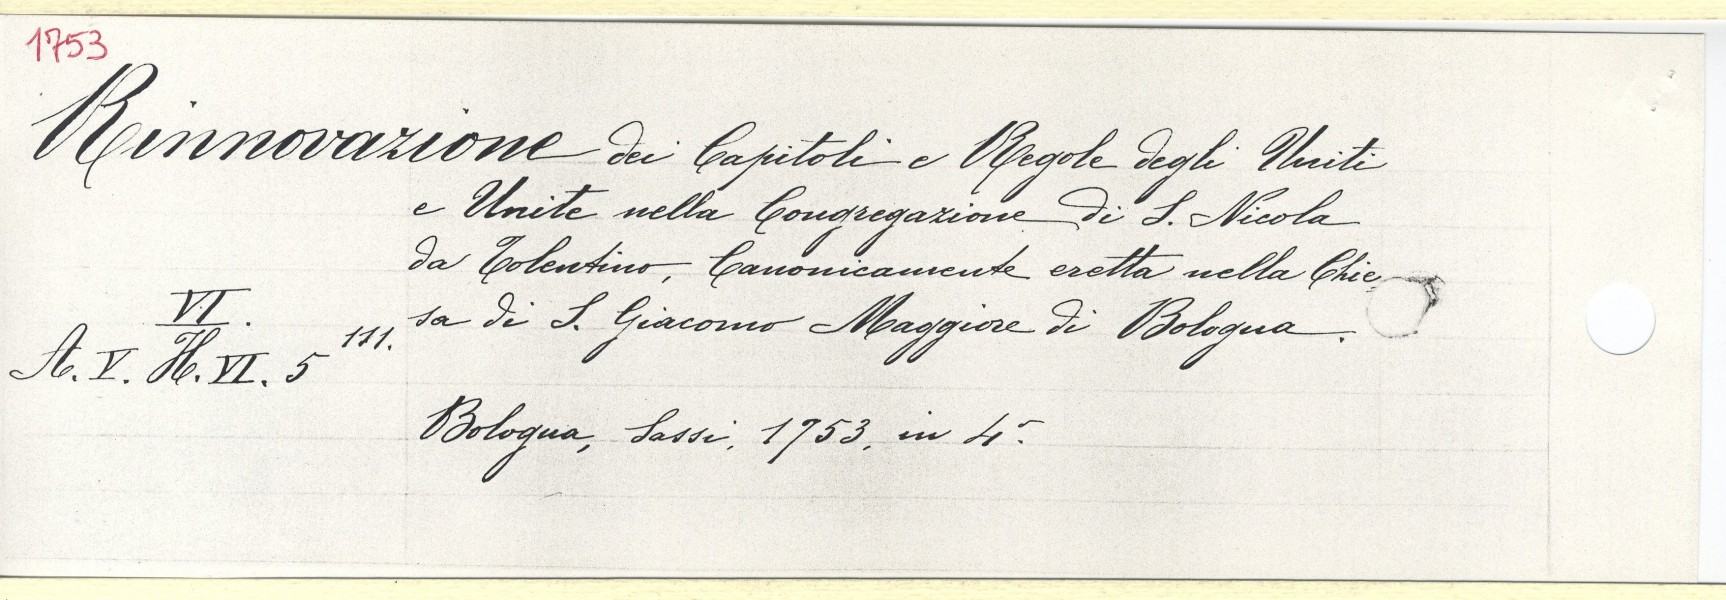 1753
Rinnovazione dei Capitoli e Regole degli Uniti
e Unite nella Congregazione di S. Nicola
da Tolentino, Canonicamente eretta nella Chie
sa di S. Giacomo Maggiore di Bologna.
VI.
A. V. H. VI. 5 111.
Bologna, Sassi, 1753, in 4.º